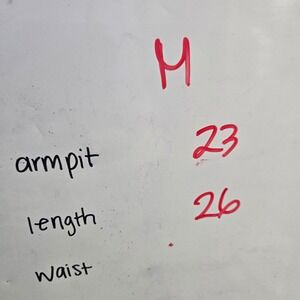 M
armpit 23
length 26
waist